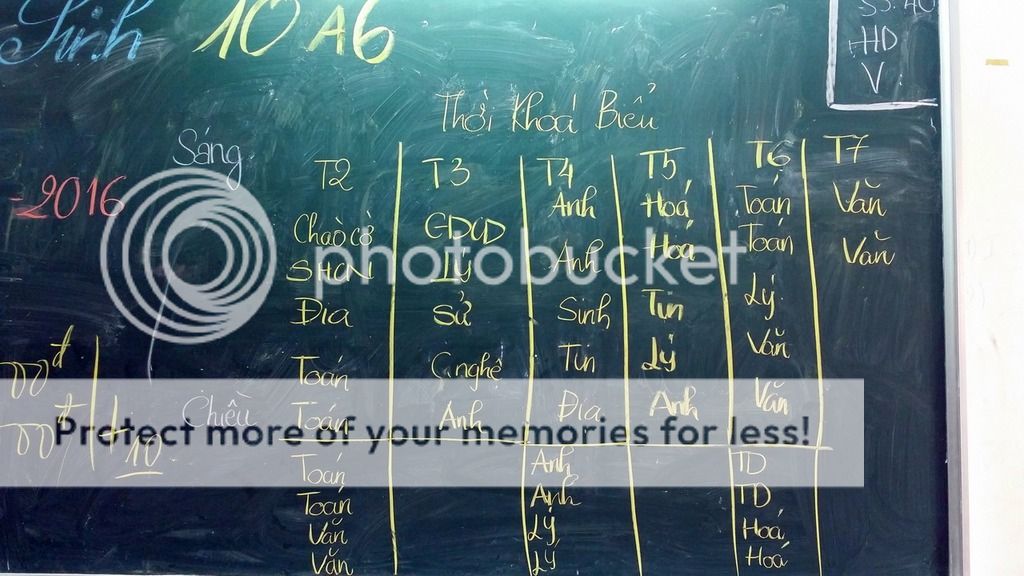 Sinh 10A6
SS: 40
HD
V
Thời Khoá Biểu
Sáng
-2016
T2 T3 T4 T5 T6 T7
Chào cờ GDCD Anh Hoá Toán Văn
SHCN Lý Anh Hoá Toán Văn
Địa Sử Sinh Tin Lý
Toán C.nghệ Tin Lý Văn
Toán Anh Địa Anh Văn
Chiều
Toán Anh TD
Toán Anh TD
Văn Lý Hoá
Văn Lý Hoá
đ
đ
10
photobucket
Protect more of your memories for less!